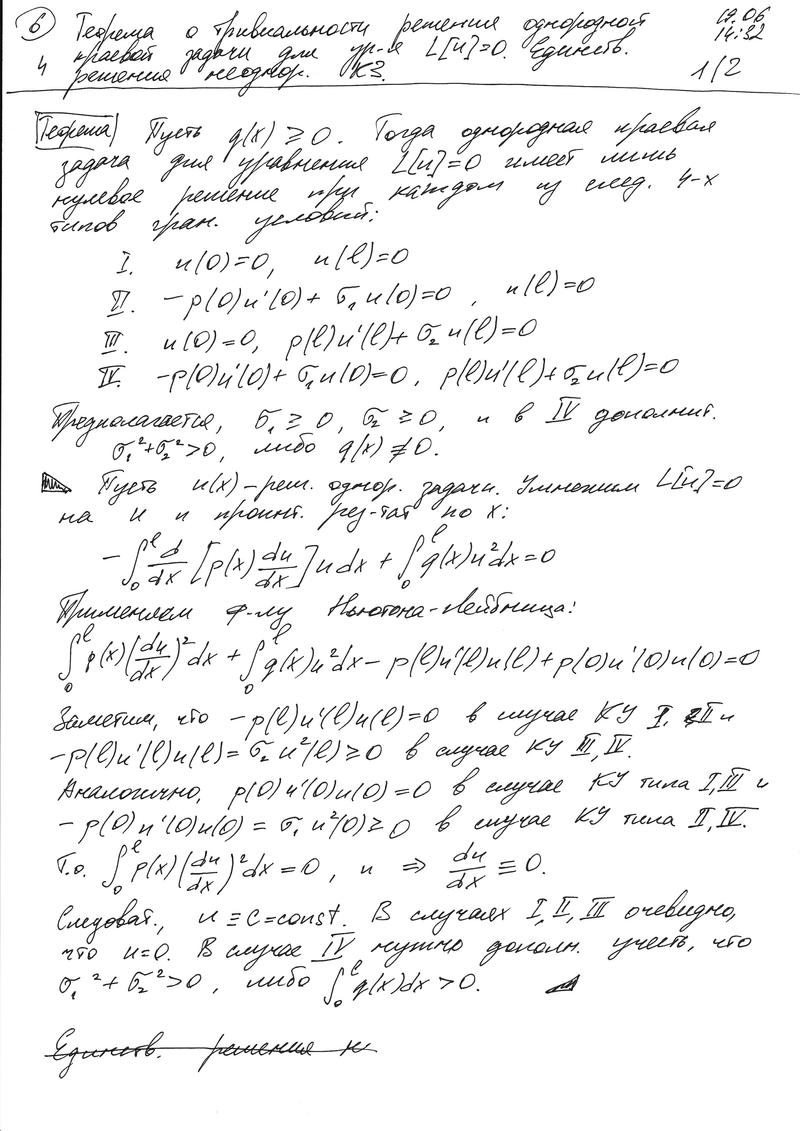 6 Теорема о тривиальности решения однородной 19.06
14:32
4 краевой задачи для ур-я L[u]=0. Единств.
решения неоднор. КЗ. 1/2
Теорема Пусть q(x) ≥ 0. Тогда однородная краевая
задача для уравнения L[u]=0 имеет лишь
нулевое решение при каждом из след. 4-х
типов гран. условий:
I. u(0)=0, u(l)=0
II. -p(0)u'(0)+ σ₁u(0)=0 , u(l)=0
III. u(0)=0, p(l)u'(l)+ σ₂u(l)=0
IV. -p(0)u'(0)+ σ₁u(0)=0, p(l)u'(l)+σ₂u(l)=0
Предполагается, σ₁ ≥ 0, σ₂ ≥ 0, и в IV дополнит.
σ₁²+σ₂²>0, либо q(x) ≢ 0.
Пусть u(x) – реш. однор. задачи. Умножим L[u]=0
на u и проинт. рез-тат по x:
-∫₀ˡ d/dx [p(x) du/dx] u dx + ∫₀ˡ q(x)u²dx=0
Применяем ф-лу Ньютона-Лейбница:
∫₀ˡ p(x)(du/dx)²dx + ∫₀ˡ q(x)u²dx - p(l)u'(l)u(l)+p(0)u'(0)u(0)=0
Заметим, что -p(l)u'(l)u(l)=0 в случае КУ I, II и
-p(l)u'(l)u(l)= σ₂u²(l) ≥ 0 в случае КУ III, IV.
Аналогично, p(0)u'(0)u(0)=0 в случае КУ типа I, III и
-p(0)u'(0)u(0) = σ₁u²(0) ≥ 0 в случае КУ типа II, IV.
Т.о. ∫₀ˡ p(x)(du/dx)²dx=0, и ⇒ du/dx ≡ 0.
Следоват., u ≡ c=const. В случаях I, II, III очевидно,
что u=0. В случае IV нужно дополн. учесть, что
σ₁²+σ₂²>0, либо ∫₀ˡ q(x)dx>0.
Единств. решения н